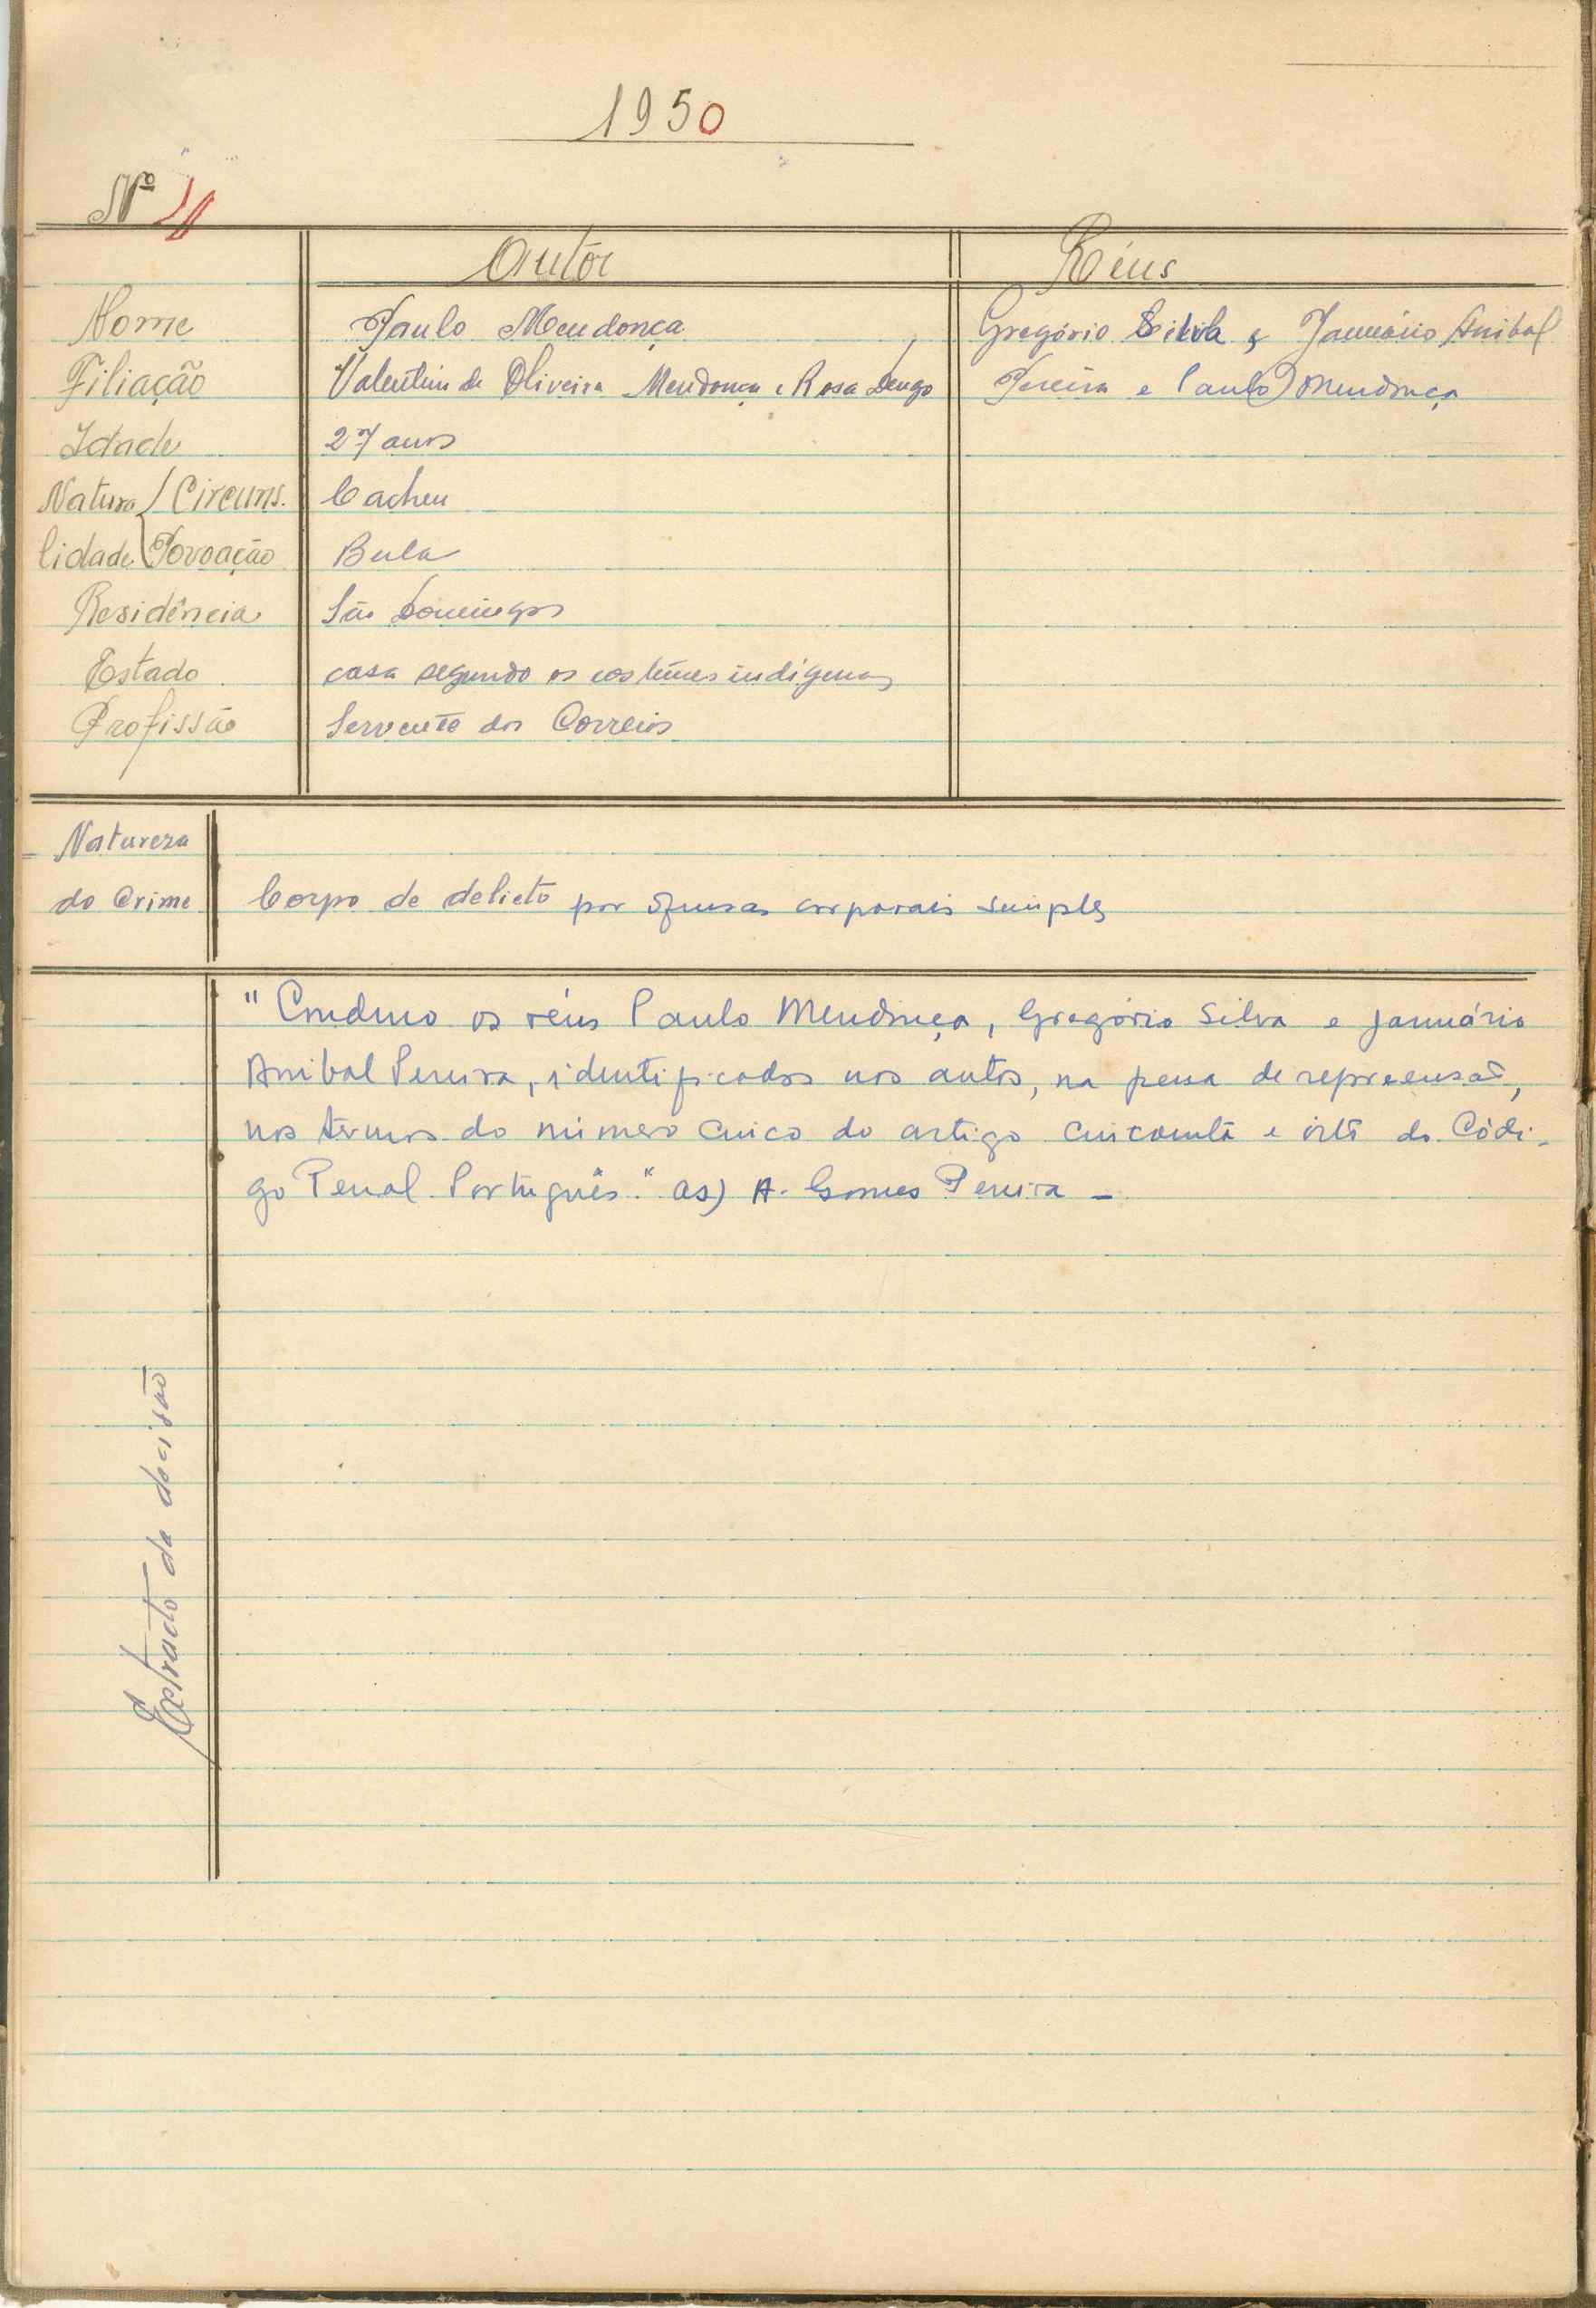 1950
Nº
Autôr
Réus
Nome
Paulo Mendonça
Gregório Silva e Januário Anibal
Filiação
Valentim de Oliveira Mendonça e Rosa
Pereira e Paulo Mendonça
Idade
27 anos
Natura Circuns.
Cacheu
lidade Povoação
Bula
Residência
São Domingos
Estado
casa segundo os costumes indígenas
Profissão
Servente dos Correios
Natureza
do Crime
Corpo de delicto por ofensas corporais simples
"Condeno os réus Paulo Mendonça, Gregório Silva e Januário
Anibal Pereira, identificados nos autos, na pena de repreensão,
nos termos do número cinco do artigo cincoenta e oito do Códi-
go Penal Português." as) A. Gomes Pereira -
Extrato da decisão